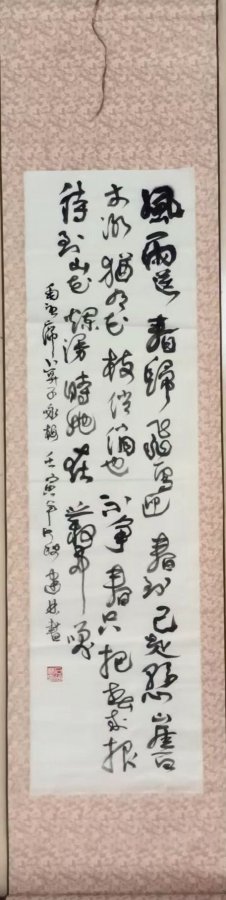 風雨送春歸飛雪迎春到已是懸崖百
丈冰猶有花枝俏俏也不爭春只把春來報
待到山花爛漫時她在叢中笑
毛主席卜算子咏梅壬寅年建林書